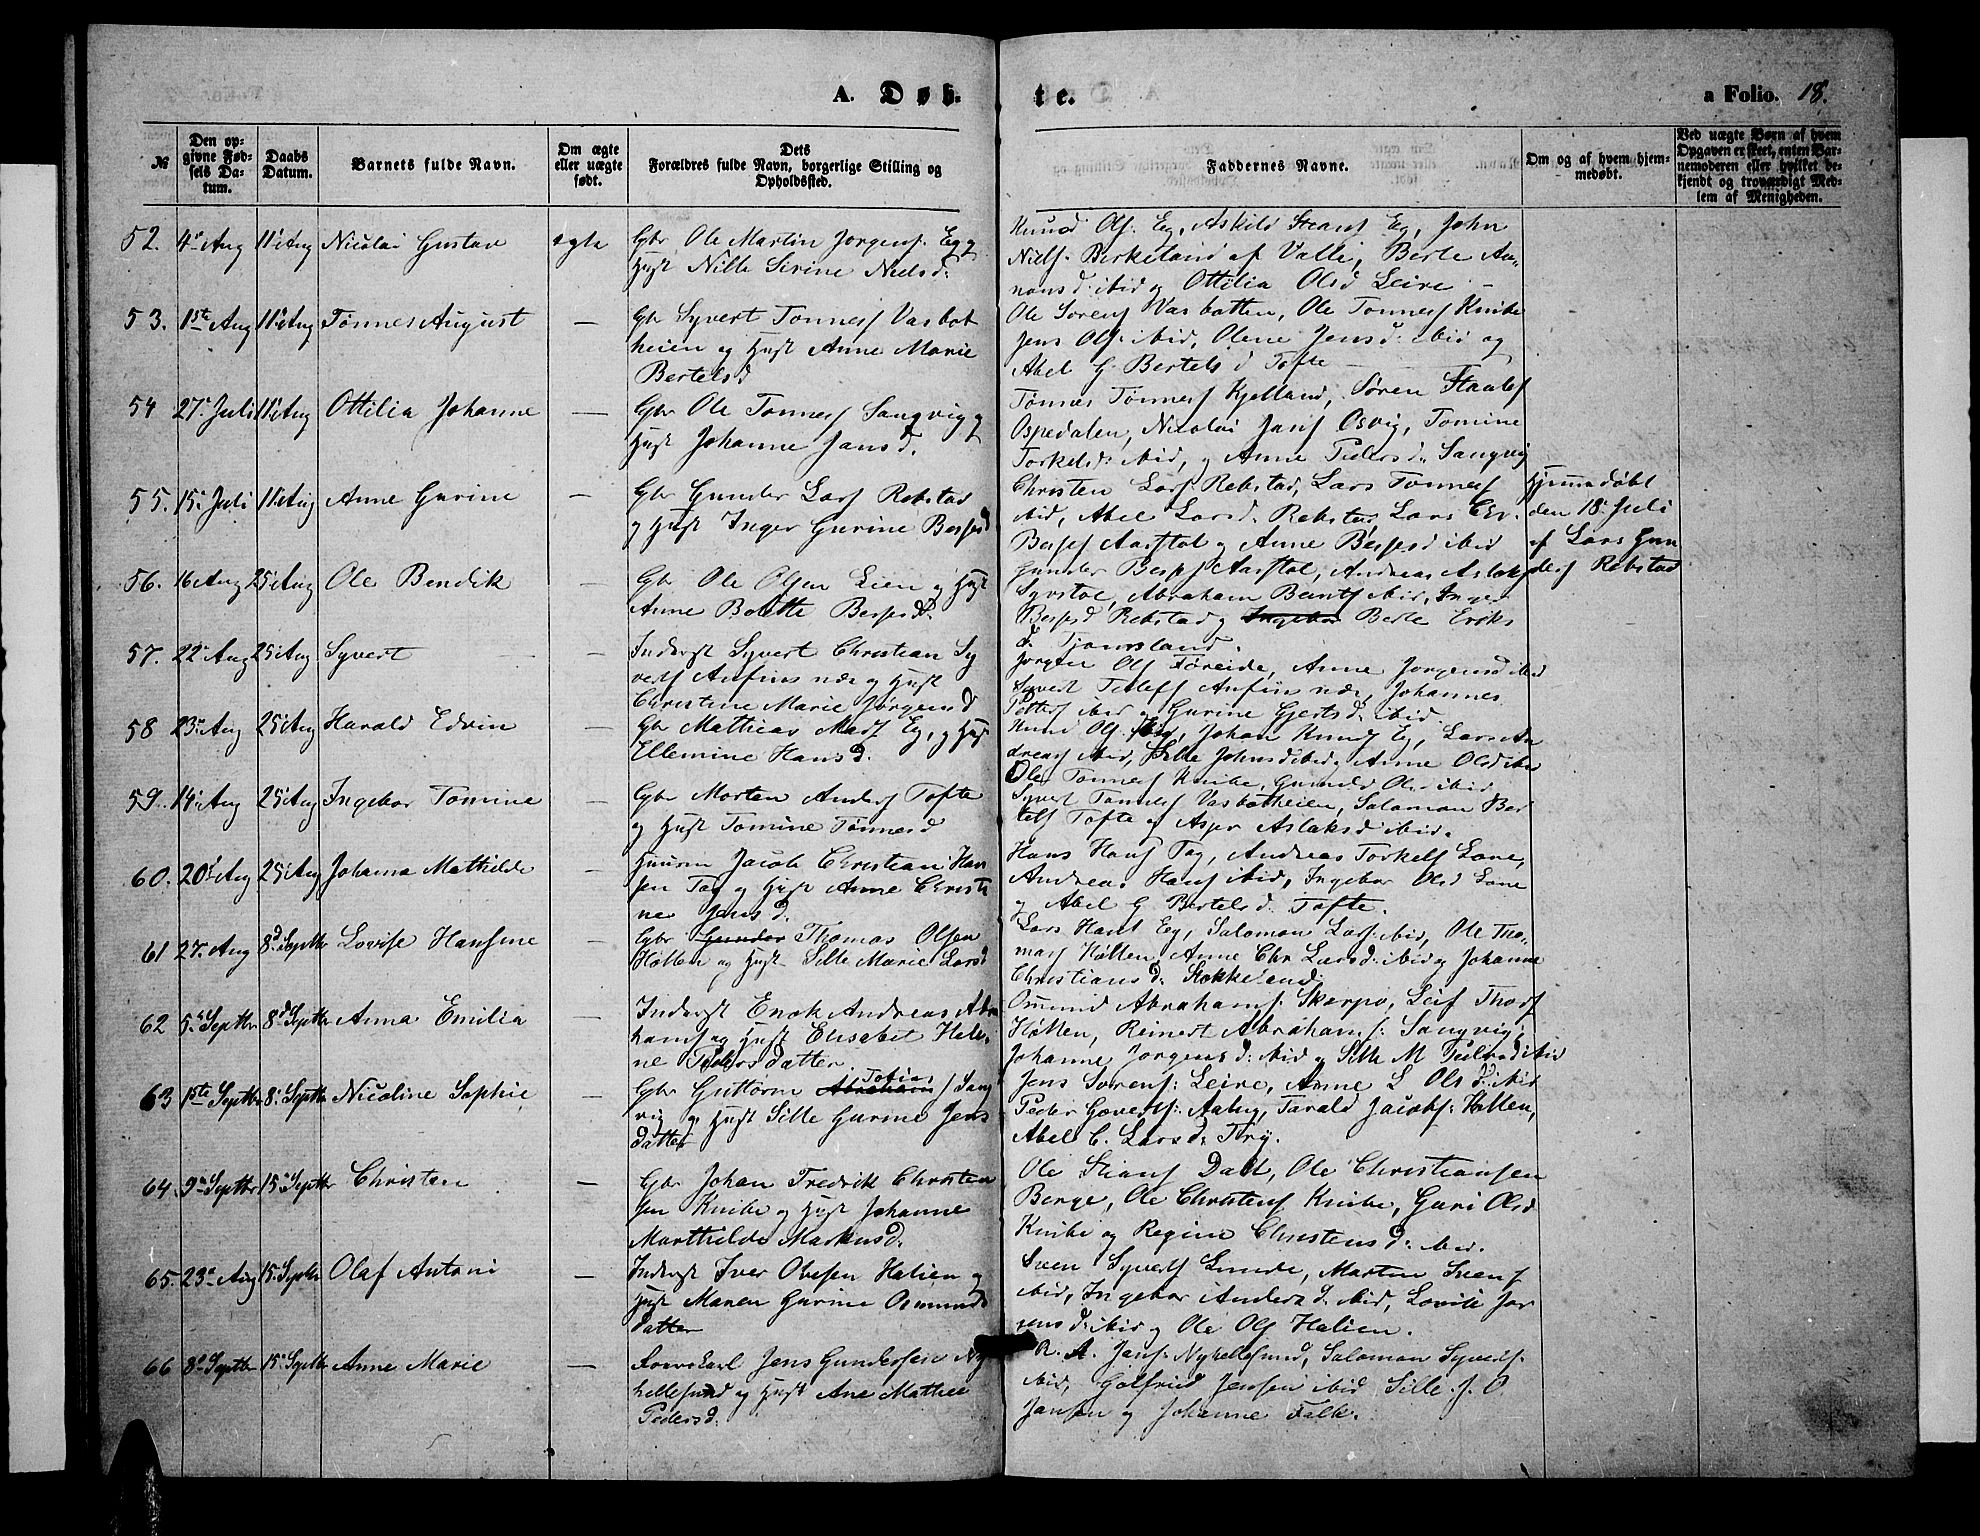 A. Døb-
te.
a Folio. 18.
№
Den opgivne Fødsels Datum.
Daabs Datum.
Barnets fulde Navn.
Om ægte eller uægte født.
Dets
Forældres fulde Navn, borgerlige Stilling og
Opholdssted.
Faddernes Navne.
Om og af hvem hjemmedøbt.
Ved uægte Børn af hvem
Opgaven er skeet, enten Barnemoderen eller hvilket bekjendt og troværdigt Medlem af Menigheden.
52. 4de Aug 11te Aug Nicolai Gustav ægte Gbr Ole Martin Jørgens: Eg og
Hust Nille Sirine Nielsd:
Knud Ols: Eg, Askild Steans Eg, John
Niels: Birkeland af Valle, Berte
ibid og Ottilia Olsd Leire
53. 1ste Aug 11te Aug Tønnes August — Gbr Syvert Tønnes Vasbot
heien og Hust Anne Marie
Bertelsd
Ole Sørens Vasbotten, Ole Tønnes Knibe
Jens Ols: ibid, Olene Jensd: ibid og
Abel G. Bertelsd Tofte
54 27de Juli 11te Aug Ottilia Johanne — Gbr Ole Tønnes Sangvig og
Hust Johanne Jansd.
Tønnes Tønnes Kjelland, Søren Staales
Ospedalen, Nicolai Jans Osvig, Tomine
Torkelsd: ibid, og Anne Pedersd: Sangvig
55. 15de Juli 11te Aug Anne Gurine — Gbr Gunder Lars Rebstad
og Hust Inger Gurine Bespesd
Christen Lars Rebstad, Lars Tønnes
ibid, Abel Larsd: Rebstad, Lars Chr.
Bespes Aarstol og Anne Bespesd ibid
Hjemmedøbt
den 18de Juli
af Lars Gun
ders Rebstad
56. 16 Aug 25de Aug Ole Bendik — Gbr Ole Olsen Lien og Hust
Anne Bolette Bespesd:
Gunder Bespes Aarstol, Andreas Aslaks
Abraham Bents ibid, Inger
Bespesd Rebstad og Ingebor Berte Eriks
d. Tjomsland.
57. 22de Aug 25de Aug Syvert — Inderst Syvert Christian Sy
verts og Hust
Christine Marie Jørgensd
Jørgen Ols Føreide, Anne Jørgensd ibid
Syvert Johannes
ibid og Gurine Gjertsd: ibid.
58 23de Aug 25de Aug Harald Edvin — Gbr Mathias Mads Eg, og Hust
Ellemine Hansd.
Knud Ols Eg, Johan Knuds Eg, Lars An
dreas ibid, Sille Johnsd ibid og Anne Olsd ibid
59. 14de Aug 25de Aug Ingebor Tomine — Gbr Morten Anders Tofte
og Hust Tomine Tønnesd
Ole Tønnes Knibe, Gunild Olsd ibid
Syvert Tønnes Vasbotheien, Salomon Ber
tels Tofte og Asper Aslaksd ibid.
60. 20de Aug 25de Aug Johanna Mathilde — Huusm Jacob Christian Han
sen Tag og Hust Anne Christi
ne Jensd.
Hans Hans Tag, Andreas Torkels Lone,
Andreas Hans ibid, Ingebor Olsd Lone
og Abel G Bertelsd: Tofte.
61 27de Aug 8de Septbr Lovise Hansine — Gbr Gunder Thomas Olsen
Høllen og Hust Sille Marie Larsd
Lars Hans Eg, Salomon Lars ibid, Ole Tho-
mas Høllen, Anne Chr Larsd: ibid og Johanne
Christiansd: Stokkeland.
62 5de Septbr 8de Septbr Anna Emilia — Inderst Enok Andreas Abra
hams og Hust Elisabet Hele-
ne Pedersdatter.
Omund Abrahams: Skarpo, Leif Thors
Høllen, Reinert Abrahams: Sangvig,
Johanne Jørgensd: ibid og Sille M ibid
63 1ste Septbr 8de Septbr Nicoline Sophie — Gbr Guttorm Abraham Tobias s Sang
vig og Hust Sille Gurine Jens
datter
Jens Sørens: Leire, Anne L Olsd: ibid
Peder Goverts: Aabeg, Tarald Jacobs: Høllen,
Abel C. Larsd: Try.
64. 9de Septbr 15de Septbr Christen — Gbr Johan Fredrik Christen
sen Knibe og Hust Johanne
Marthilde Markusd.
Ole Stians Dalt, Ole Christiansen
Berge, Ole Christens Knibe, Guri Olsd
Knibe og Regine Christensd: ibid.
65. 23de Aug 15. Septbr Olaf Antoni — Inderst Iver Olesen Halien og
Hust Maren Gurine Osmunds
datter
Sven Syverts Lunde, Martin Svens
ibid, Ingebor Andersd. ibid, Lovise Jør
gensd: ibid og Ole Ols Halien.
66 8de Septbr 15de Septbr Anne Marie — Jens Gundersen Ny
hellesund og Hust Ane Mathea
Pedersd:
R. A. Jans: Nyhellesund, Salomon Syverts:
ibid, Golfried Jensen ibid Sille J. O
Jansen og Johanne Falk.